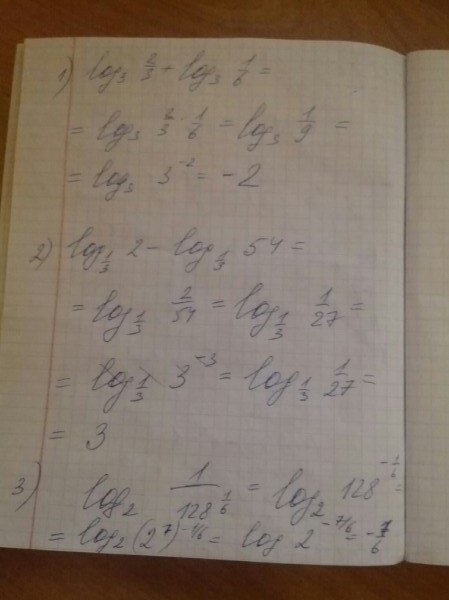 1) log₃ 2/3 + log₃ 1/6 =
= log₃ 2/3 · 1/6 = log₃ 1/9 =
= log₃ 3⁻² = -2
2) log_{1/3} 2 - log_{1/3} 54 =
= log_{1/3} 2/54 = log_{1/3} 1/27 =
= log_{1/3} 3⁻³ = log_{1/3} 1/27 =
= 3
3) log₂ 1/128^{1/6} = log₂ 128^{-1/6} =
= log₂ (2⁷)^{-1/6} = log 2^{-7/6} = -7/6